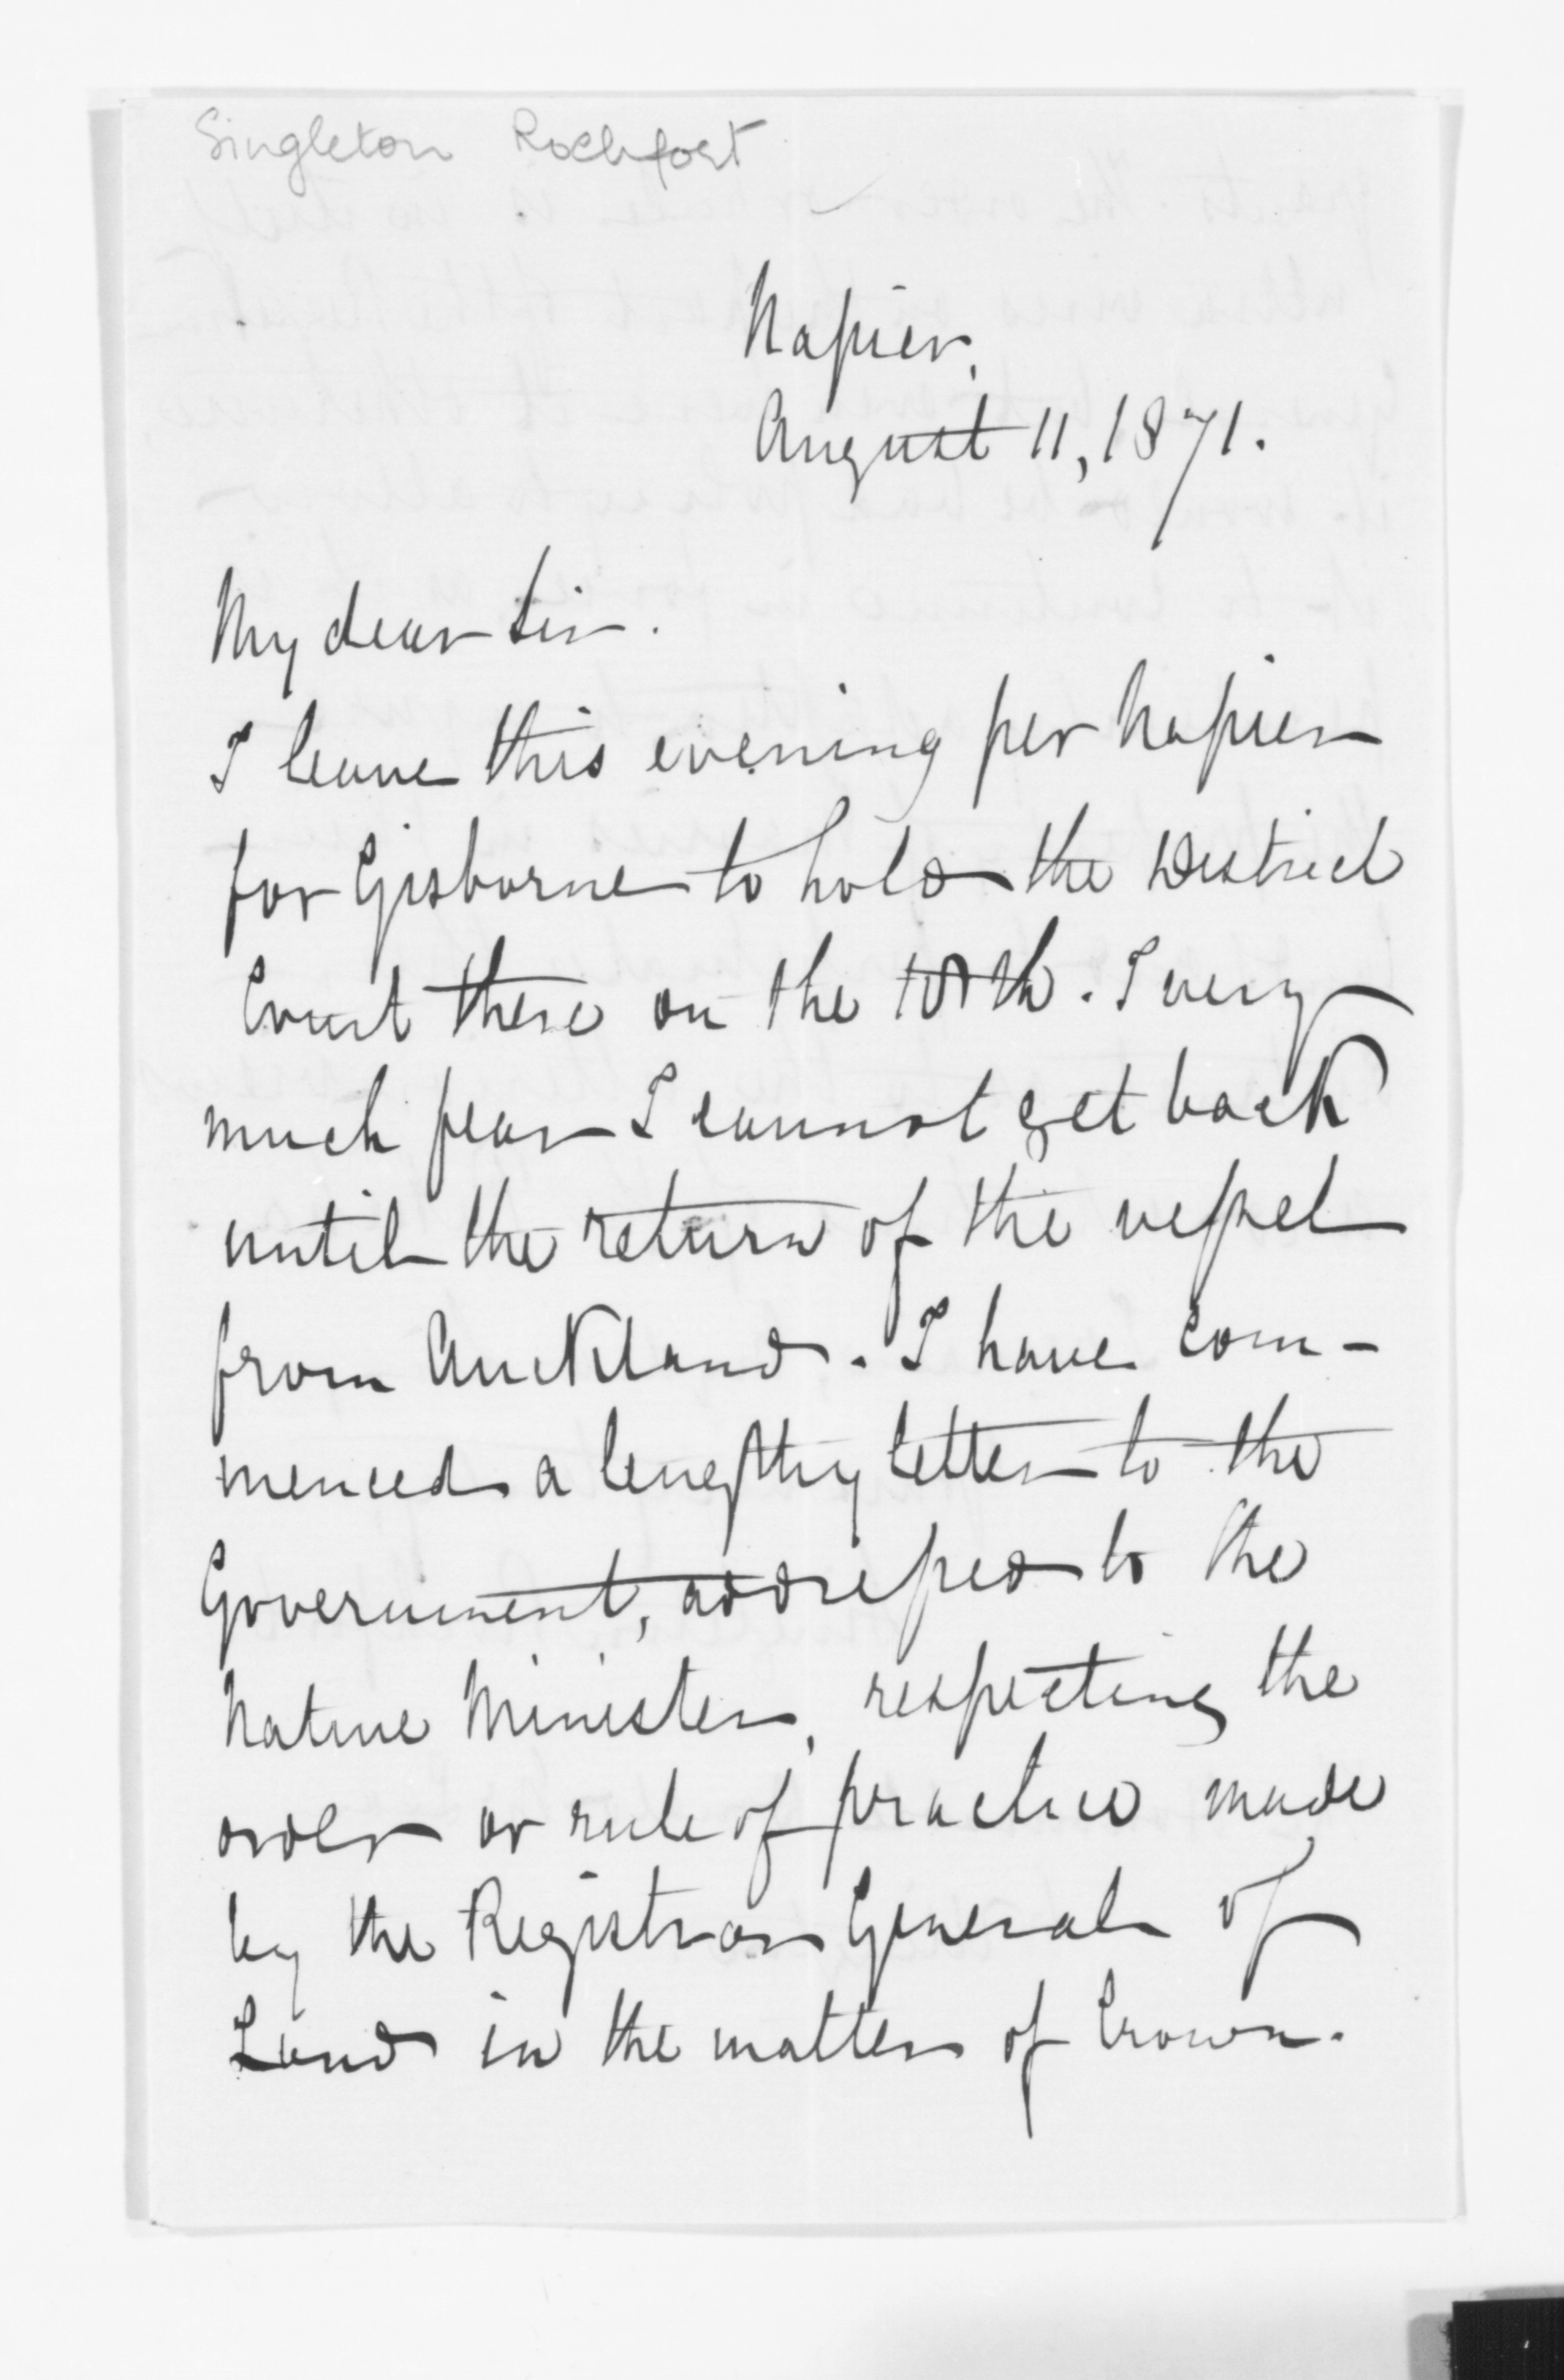 Singleton Rochfort
Napier,
August 11, 1871.
My dear Sir.
I leave this evening per Napier
for Gisborne to hold the District
Court there on the . I very
much fear I cannot get back
until the return of the vessel
from Auckland. I have com-
menced a lengthy letter to the
Government, addressed to the
Native Minister, respecting the
order or rule of practice made
by the Registrar General of
Land in the matter of Crown.